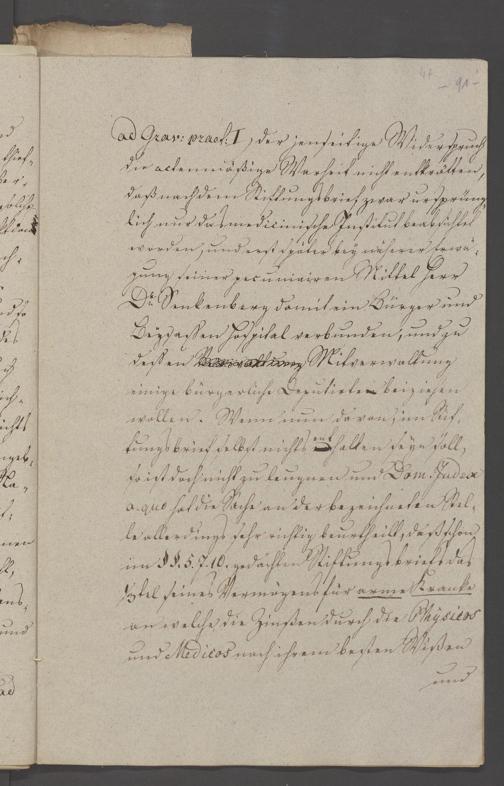 47
- 91 -
ad Grav: praet: I, der jenseitige Widerspruch
die actenmäßige Warheit nicht entkräften,
daß nach dem Stiftungsbrief zwar ursprüng-
lich nur das medicinische Institut beabsichtet
worden, und erst später bey näherer Erwä-
gung seiner pecuniairen Mittel Herr
Dr. Senkenberg damit ein Bürger und
Beysaßen Hospital verbunden, und zu
dessen Mitverwaltung
einige bürgerliche Deputirte beiziehen
wollen. Wenn nun davon im Stif-
tungsbrief selbst nichts enthalten seyn soll,
so ist doch nicht zu leugnen und Dom. Judex
a quo hat die Sache an der bezeichneten Stel-
le allerdings sehr richtig beurtheilt, daß schon
im §§. 5. 7. 10. gedachten Stiftungsbriefs das
1/3tel seines Vermögens für arme Kranke
an welche die Zinßen durch die Physicos
und Medicos nach ihrem besten Wißen
und